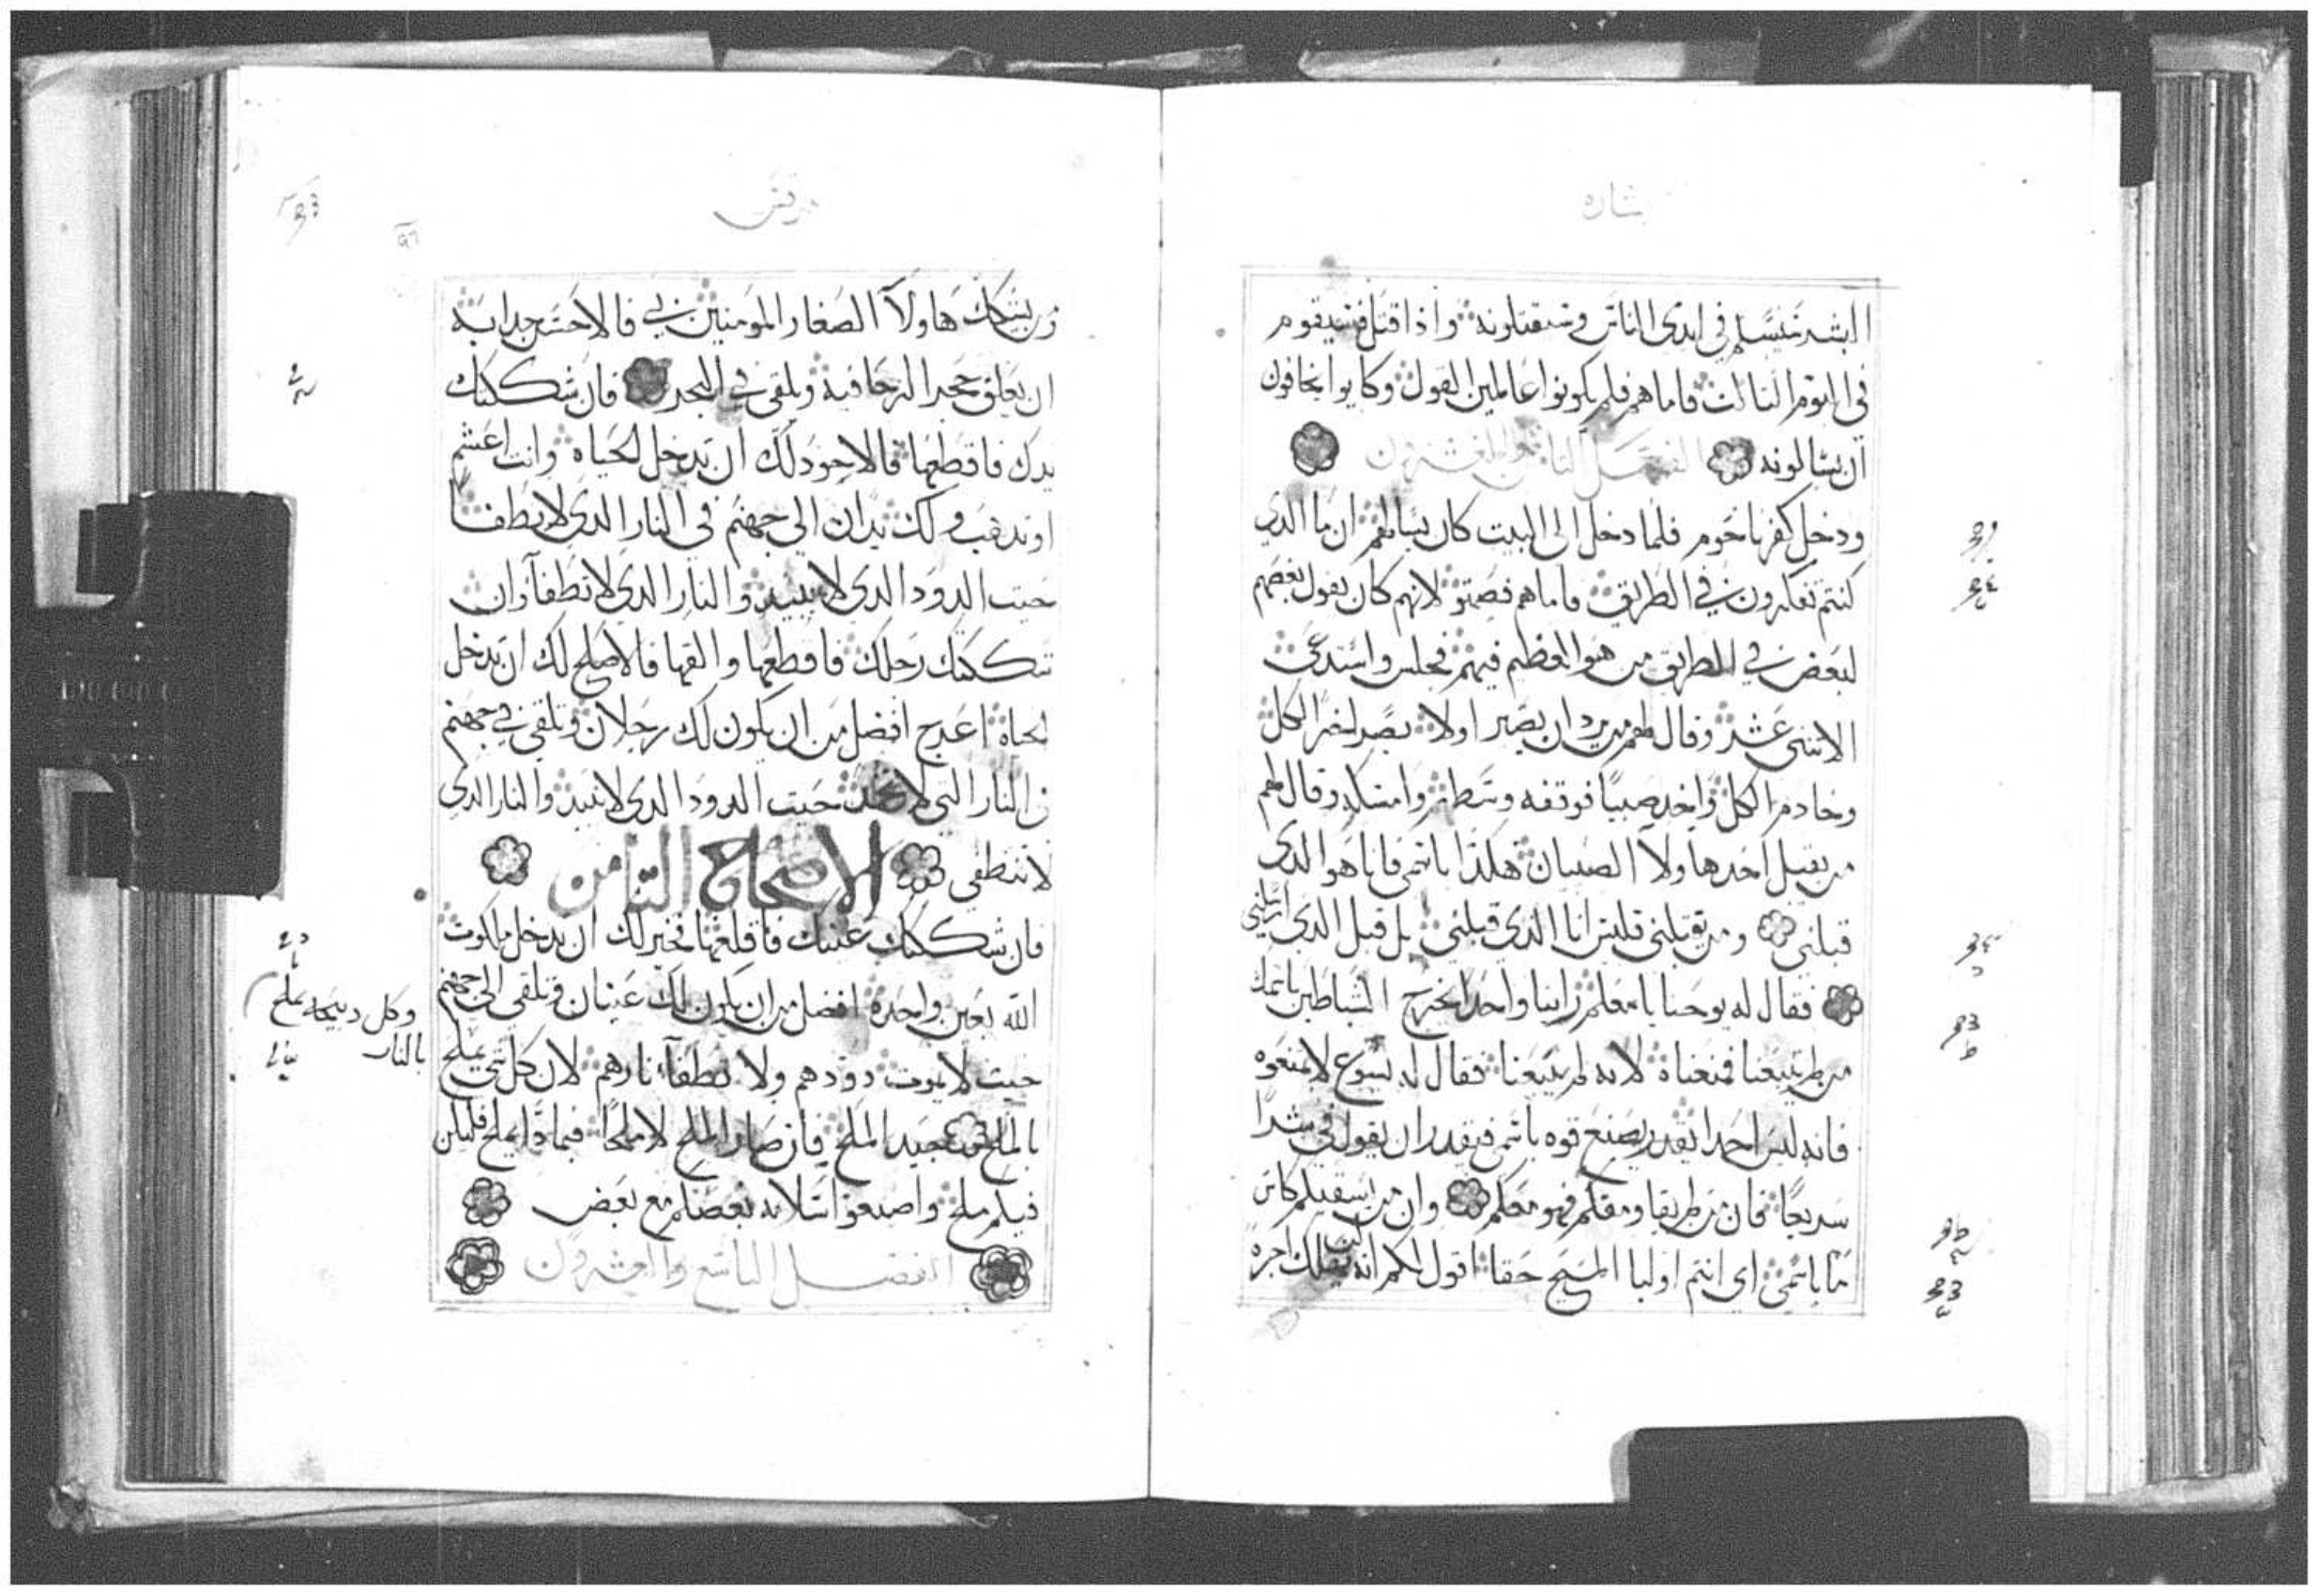 بشاره
البشر سيسلم في ايدي الناس وسيقتلونه واذا قتل فسيقوم
في اليوم الثالث فاما هم فلم يكونوا عالمين القول وكانوا يخافون
ان يسالونه الفصل الثامن والعشرون
ودخل كفرناحوم فلما دخل الى البيت كان يسايلهم ان ما الدي
كنتم تفكرون في الطريق فاما هم فصمتو لانهم كان يقول بعضهم
لبعض في الطريق من هو العظم فيهم فجلس واستدعى
الاثنى عشر وقال لهم من يريد ان يصير اولا يصير اخر الكل
وخادم الكل واخد صبيا فوقفه وسطهم وامسكه وقال لهم
من يقبل احد هاولا الصبيان هكذا باسمي فانا هو الدي
قبلني ومن يقبلني فليس انا الذي قبلني بل قبل الدي ارسلني
فقال له يوحنا يا معلم راينا واحدا يخرج الشياطين باسمك
من لم يتبعنا فمنعناه لانه لم يتبعنا فقال له يسوع لا تمنعوه
فانه ليس احدا يقدر يصنع قوه باسمي فيقدر ان يقول في شرا
سريعا فان من لم يقاومكم فهو معكم وان من يسقيكم كاس
ما باسمي اي انتم اوليا المسيح حقا اقول لكم انه ليس يهلك اجره
مرقس
من يشكك هاولآ الصغار المومنين بي فالاحسن جدا به
ان يعلق حجر الرحا فيه ويلقى في البحر فان شككتك
يدك فاقطعها فالاجود لك ان تدخل الحياه وانت اعشم
او تدهب ولك يدان الى جهنم في النار الدي لا يطفا
حيت الدود الدي لا يبيد والنار الدي لا تطفآ وان
شككتك رجلك فاقطعها والقها فالاصلح لك ان تدخل
الحياه اعرج افضل من ان يكون لك رجلان وتلقى في جهنم
في النار التي لا تخمد حيت الدود الدي لا يبيد والنار الدي
لا تنطفي الاصحاح الثامن
فان شككتك عينك فاقلعها فخير لك ان تدخل ملكوت
الله بعين واحده افضل من ان يكون لك عينان وتلقى الى جهنم
حيث لا يموت دودهم ولا تطفآ نارهم لان كل شي يملح
بالملح جيد الملح فان صار الملح لا ملحا فبمادا يملح فليكن
فيكم ملح واصنعوا سلامه بعضكم مع بعض
الفصل التاسع والعشرون
وكل دبيحه تملح
بالنار